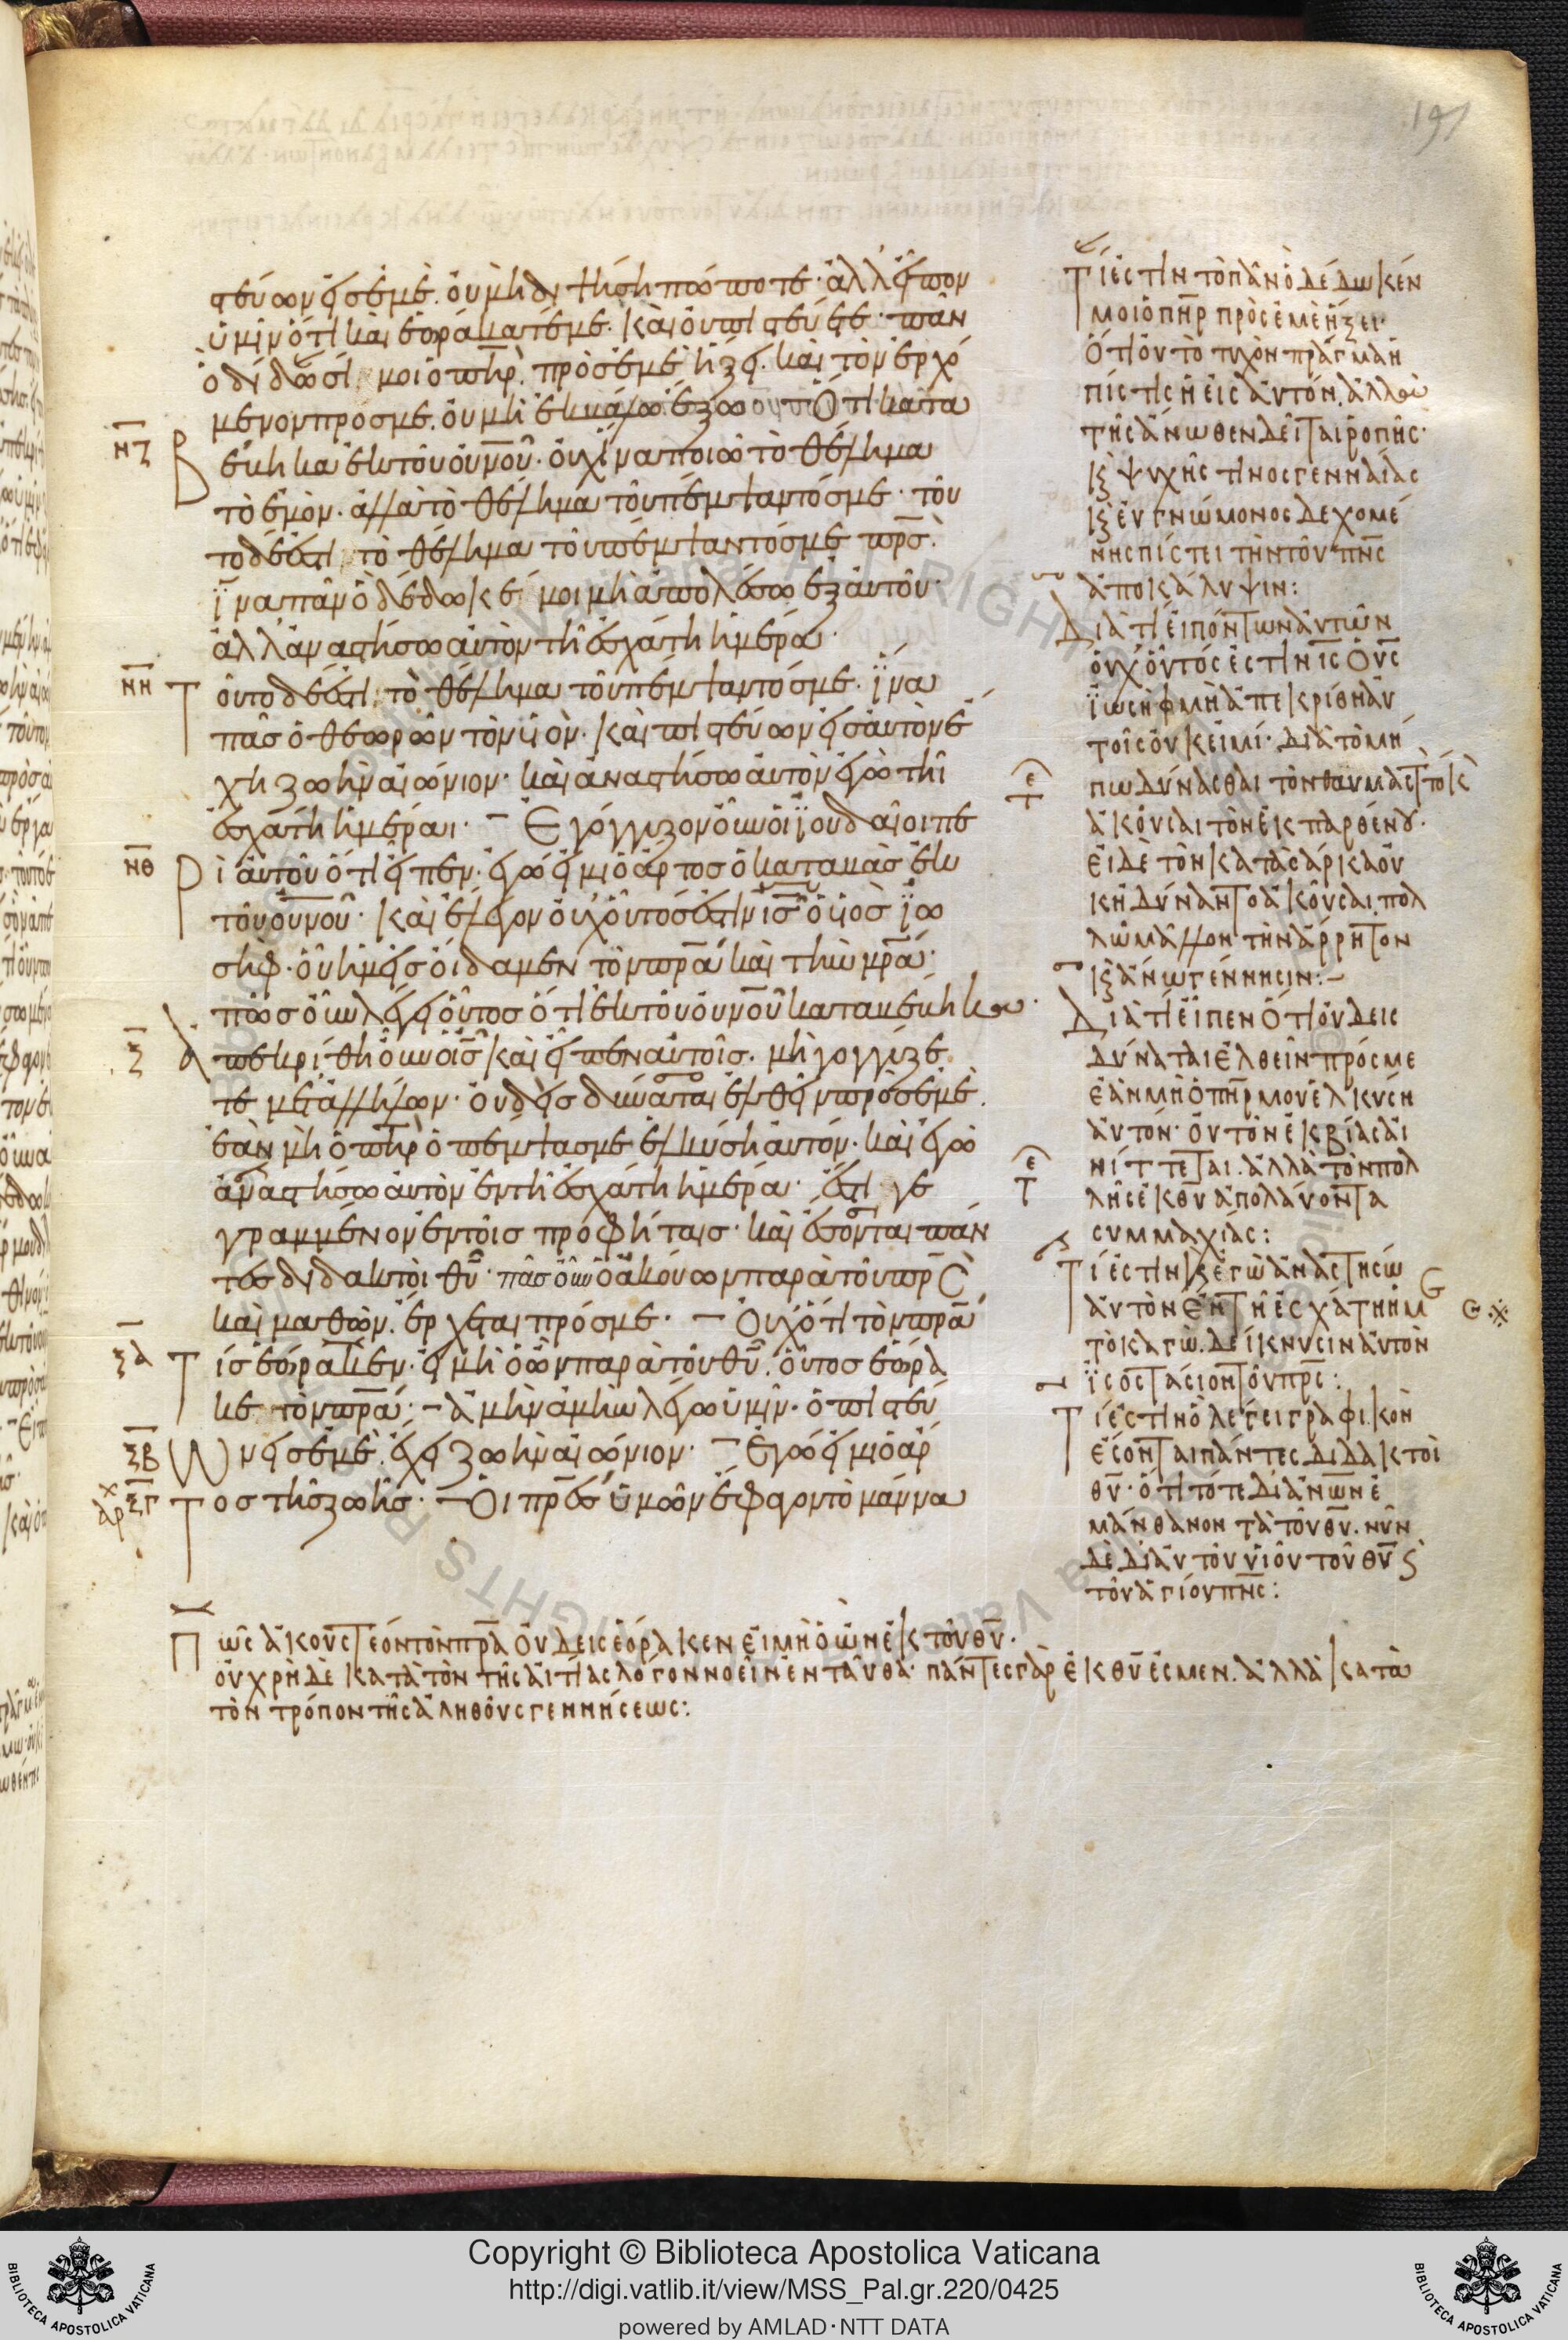 191
στεύων εἰς ἐμὲ. οὐ μὴ διψήσῃ πώποτε· ἀλλ εἶπον
ὑμῖν ὅτι καὶ ἑωράκατέ με. καὶ οὐ πιστεύετε· πᾶν
ὃ δίδωσί μοι ὁ πηρ. πρὸς ἐμὲ ἥξει. καὶ τὸν ἐρχό
μενον προς με. οὐ μὴ ἐκβάλω ἔξω Ὅτι κατα
ΝΖ
Βέβηκα ἐκ τοῦ οὐνοῦ. οὐχ ἵνα ποιῶ τὸ θέλημα
τὸ ἐμὸν. ἀλλὰ τὸ θέλημα τοῦ πέμψαντός με· τοῦ
το δέ ἐστι τὸ θέλημα τοῦ πέμψαντός με πρσ.
ἵνα πᾶν ὃ δέδωκέ μοι μὴ ἀπολέσω ἐξ αὐτοῦ·
ἀλλ ἀναστήσω αὐτὸν τῇ ἐσχάτῃ ἡμέρα·
ΝΗ
Τοῦτο δέ ἐστι τὸ θέλημα τοῦ πέμψαντός με. ἵνα
πᾶς ὁ θεωρῶν τὸν υἱὸν. καὶ πιστεύων εἰς αὐτὸν ἔ
χῃ ζωὴν αἰώνιον· καὶ ἀναστήσω αὐτὸν ἐγὼ τῇ
ἐσχάτῃ ἡμέραι· Ἐγόγγυζον οὖν οἱ ἰουδαῖοι πε
ΝΘ
Ρὶ αὐτοῦ ὅτι εἶπεν. ἐγώ εἰμι ὁ ἄρτος ὁ καταβὰς ἐκ
τοῦ οὐνοῦ· καὶ ἔλεγον οὐχ οὗτός ἐστιν ισ ὁ υἱὸς ἰω
σὴφ. οὗ ἡμεῖς οἴδαμεν τὸν πρα καὶ τὴν μρα·
πῶς οὖν λέγει οὗτος ὅτι ἐκ τοῦ οὐνοῦ καταβέβηκα·
Ξ
Ἀπεκρίθη οὖν ὁ ισ καὶ εἶπεν αὐτοῖς. μὴ γογγύζε
τε μετ ἀλλήλων· οὐδεὶς δύναται ἐλθεῖν πρὸς ἐμὲ.
ἐὰν μὴ ὁ πηρ ὁ πέμψας με ἑλκύσῃ αὐτόν· καὶ ἐγὼ
ἀναστήσω αὐτὸν ἐν τῇ ἐσχάτῃ ἡμέρα· ἔστι γε
γραμμένον ἐν τοῖς προφήταις· καὶ ἔσονται πάν
τες διδακτοὶ θυ· πᾶς οὖν ὁ ἀκούων παρὰ τοῦ πρσ
καὶ μαθὼν. ἔρχεται πρός με· Οὐχ ὅτι τὸν πρα
ΞΑ
Τίς ἑώρακεν. εἰ μὴ ὁ ὢν παρὰ τοῦ θυ. οὗτος ἑώρα
κε τὸν πρα· ἀμὴν ἀμὴν λέγω ὑμῖν. ὁ πιστεύ
ΞΒ
Ων εἰς ἐμὲ. ἔχει ζωὴν αἰώνιον· Ἐγώ εἰμι ὁ ἄρ
ΞΓ
Τος τῆς ζωῆς· Οἱ πρεσ ὑμῶν ἔφαγον τὸ μάννα
Τί ἐστιν τὸ πᾶν ὃ δέδωκέν
μοι ὁ πηρ πρὸς ἐμὲ ἥξει·
Ὅτι οὐ τὸ τυχὸν πρᾶγμα ἡ
πίστις ἡ εἰς αὐτόν. ἀλλὰ
τῆς ἄνωθεν δεῖται ῥοπῆς·
κ ψυχῆς τινος γενναίας
κ εὐγνώμονος δεχομέ
νης πίστει τὴν τοῦ πνσ
ἀποκάλυψιν:
Διὰ τί εἰπόντων αὐτῶν
οὐχ οὗτός ἐστιν ισ ὁ υσ
ἰωσὴφ μὴ ἀπεκρίθη αὐ
τοῖς οὐκ εἰμί· διὰ τὸ μή
πω δύνασθαι τὸν θαυμαστὸ κ
ἀκοῦσαι τὸν ἐκ παρθένου·
εἰ δὲ τὸν κατὰ σάρκα οὐ
κ ἠδύναντο ἀκοῦσαι πολ
λῶ μᾶλλον τὴν ἄρρητον
κ ἄνω γέννησιν:
Διὰ τί εἶπεν ὅτι οὐδεὶς
δύναται ἐλθεῖν πρός με
ἐὰν μὴ ὁ πηρ μου ἑλκύσῃ
αὐτόν· οὐ τὸν ἐκβίασαι
νίττεται. ἀλλὰ τὸν πολ
λῆς ἐκ θυ ἀπολαύοντα
συμμαχίας:
Τί ἐστιν κ ἐγὼ ἀναστήσω
αὐτὸν ἐν τῇ ἐσχάτῃ ἡμ
τὸ καγὼ. δείκνυσιν αὐτὸν
ἰσοστάσιον τοῦ πρσ:
Τί ἐστιν ὃ λέγει γραφικὸν
ἔσονται πάντες διδακτοὶ
θυ· ὅτι τότε δι ἀνων ἐ
μάνθανον τὰ τοῦ θυ. νῦν
δὲ δι αὐτοῦ υἱοῦ τοῦ θυ κ
τοῦ ἁγίου πνσ:
Πῶς ἀκουστέον τὸν πρα οὐδεὶς ἑόρακεν εἰ μὴ ὁ ὢν ἐκ τοῦ θυ·
οὐ χρὴ δὲ κατὰ τὸν τῆς αἰτίας λόγον νοεῖν ἐνταῦθα· πάντες γὰρ ἐκ θυ ἐσμεν. ἀλλὰ κατὰ
τὸν τρόπον τῆς ἀληθοῦς γεννήσεως:
Copyright © Biblioteca Apostolica Vaticana
http://digi.vatlib.it/view/MSS_Pal.gr.220/0425
powered by AMLAD·NTT DATA
BIBLIOTECA APOSTOLICA VATICANA
BIBLIOTECA APOSTOLICA VATICANA